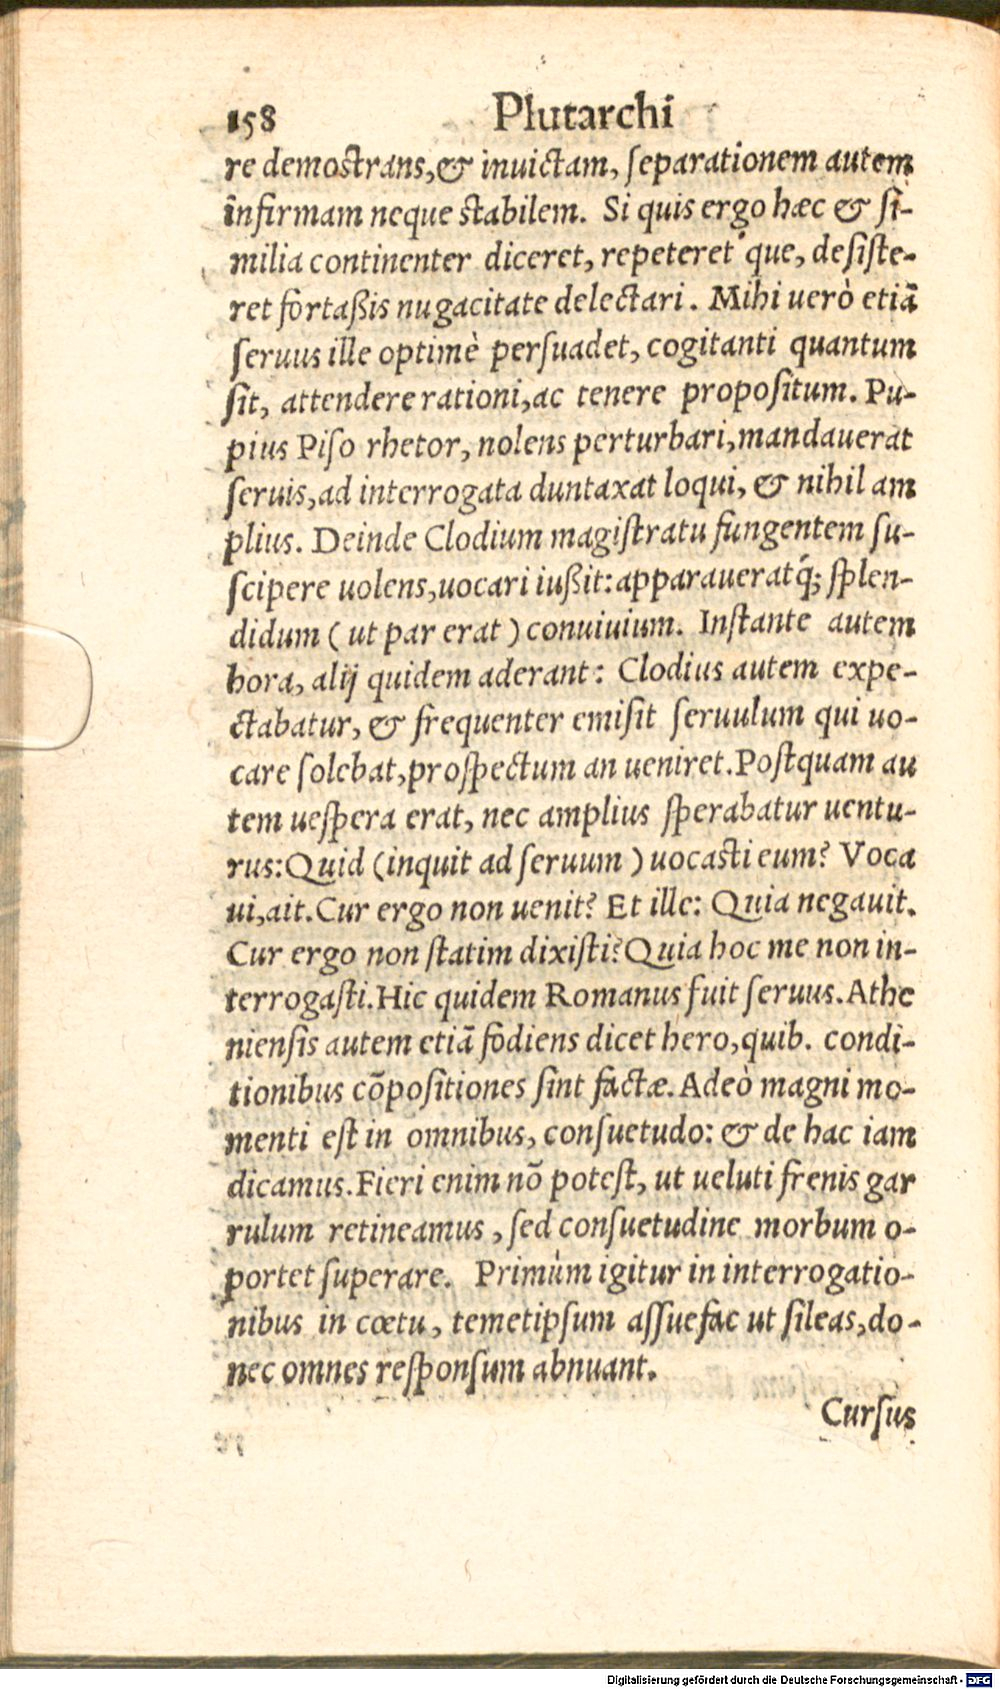 158 Plutarchi
re demostrans,& inuictam, ſeparationem autem
infirmam neque ſtabilem. Si quis ergo hæc & ſi-
milia continenter diceret, repeteret que, deſiſte-
ret fortaßis nugacitate delectari. Mihi uerò etiā
ſeruus ille optimè perſuadet, cogitanti quantum
ſit, attendere rationi,ac tenere propoſitum. Pu-
pius Piſo rhetor, nolens perturbari,mandauerat
ſeruis,ad interrogata duntaxat loqui, & nihil am
plius. Deinde Clodium magiſtratu fungentem ſu-
ſcipere uolens,uocari iußit:apparaueratq́; ſplen-
didum (ut par erat) conuiuium. Inſtante autem
hora, alij quidem aderant: Clodius autem expe-
ctabatur, & frequenter emiſit ſeruulum qui uo-
care ſolebat,proſpectum an ueniret.Poſtquam au
tem ueſpera erat, nec amplius ſperabatur uentu-
rus:Quid (inquit ad ſeruum) uocaſti eum? Voca
ui,ait.Cur ergo non uenit? Et ille: Quia negauit.
Cur ergo non ſtatim dixiſti?Quia hoc me non in-
terrogaſti.Hic quidem Romanus fuit ſeruus.Athe
nienſis autem etiā fodiens dicet hero,quib. condi-
tionibus cōpoſitiones ſint factæ.Adeò magni mo-
menti eſt in omnibus, conſuetudo: & de hac iam
dicamus.Fieri enim nō poteſt, ut ueluti frenis gar
rulum retineamus, ſed conſuetudine morbum o-
portet ſuperare. Primùm igitur in interrogatio-
nibus in cœtu, temetipſum aſſuefac ut ſileas,do-
nec omnes reſponſum abnuant.
Curſus
Digitalisierung gefördert durch die Deutsche Forschungsgemeinschaft - DFG